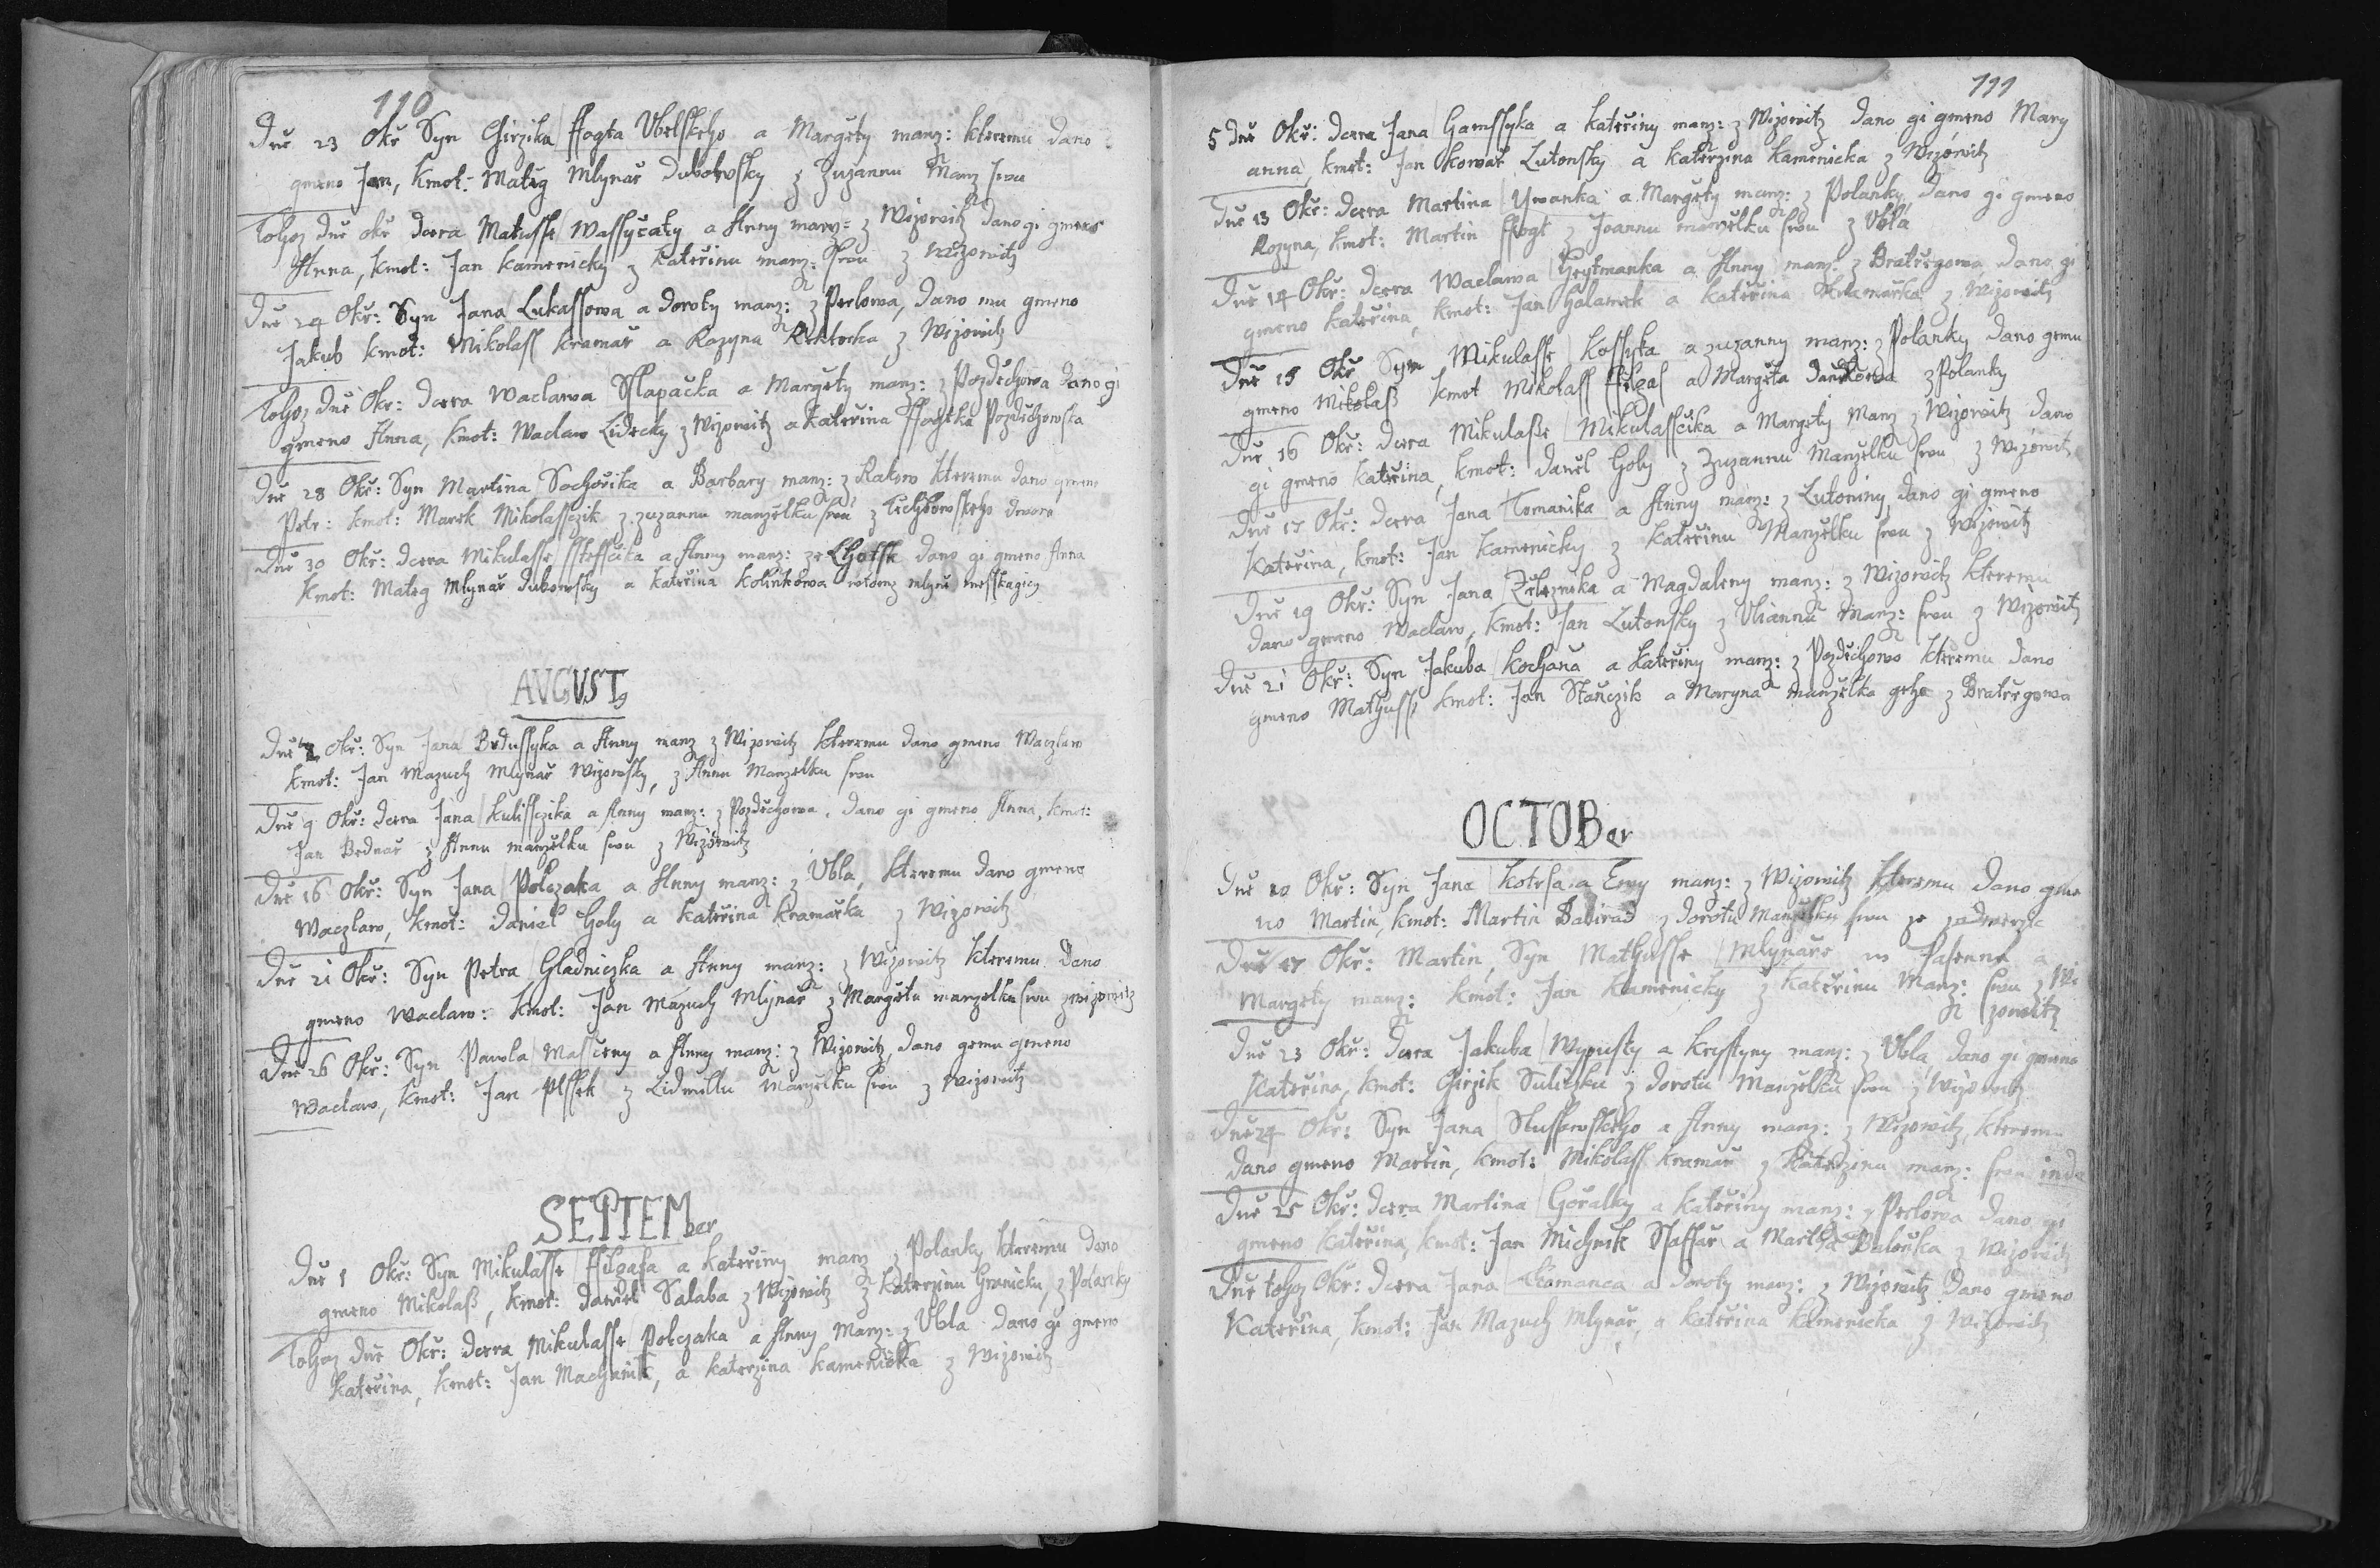 110
Dně 23 Okř Syn Girzika ffogta Vblskeho a Margéty manz: kteremu dano
gmeno Jan, kmot: Matěg Mlynář Dubowsky z Zuzannu Manz swu
Tohoz dně okř dcera Matusse Wassyčaty a Anny manz: z Wizowitz dano gi gmeno
Anna, kmot: Jan Kamenicky z Kateřinu manz: swu z Wizowitz
Dně 24 Okř: Syn Jana Lukassowa a Doroty manz: z Perlowa, dano mu gmeno
Jakub kmot: Mikolass Kramař a Rozyna Rektorka z Wizowitz
Tohoz dně Okr: dcera Waclawa Slapačka a Margéty manz: z Pozděchowa dano gi
gmeno Anna, kmot: Waclaw Lidecky z Wizowitz a Kateřina ffogtka Pozděchowska
Dně 28 Okř: Syn Martina Sochořika a Barbary manz: z Rakow kteremu dano gmeno
Petr: kmot: Marek Mikolassczik z zuzannu manzělku swu z Tichowskeho dwora
Dně 30 Okř: dcera Mikulasse Steffčika a Anny manz: ze Lhotsk dano gi gmeno Anna
kmot: Matěg Mlynář Dubowsky a Kateřina Kolinkowa mlyně messkagicy
AVGVSTg
Dně Okř: Syn Jana Bedussyka a Anny manz z Wizowitz kteremu dano gmeno Waczlaw
kmot: Jan Mazuch Mlynář Wizowsky, z Annu Manzelku swu
Dně 9 Okř: dcera Jana Kulissczika a Anny manz: z Pozděchowa. dano gi gmeno Anna, kmot:
Jan Bednář z Annu manzělku swu z Wizowitz
Dně 16 Okř: Syn Jana Polczaka a Anny manz: z Vbla, kteremu dano gmeno
Waczlaw, kmot: Daniel Holy a Kateřina Kramařka z Wizowitz
Dně 21 Okř: Syn Petra Hladniczka a Anny manz: z Wizowitz kteremu dano
gmeno Waclaw: kmot: Jan Mazuch Mlynář z Margétu manzelku swu z wizowitz
Dně 26 Okř: Syn Pawla Masceny a Anny manz: z Wizowitz, dano gemu gmeno
Waclaw, kmot: Jan Plssek z Lidmillu Manzělku swu z Wizowitz
SEPTEMber
Dně 1 Okř: Syn Mikulasse ffilgasa a Kateřiny manz z Polanky kteremu dano
gmeno Mikolaß, kmot: Daniel Salaba z Wizowitz z Katerzinu Granicku, z Polanky
Tohoz dně Okř: dcera Mikulasse Polczaka a Anny Manz: z Vbla dano gi gmeno
Kateřina, kmot: Jan Machanik, a Katerzina Kamenička z Wizowitz
111
5 dně Okř: dcera Jana Hamssyka a Kateřiny manz: z Wizowitz dano gi gmeno Mary
anna, kmot: Jan Kowař Lutonsky a Katerzina Kamenicka z Wizowitz
Dně 13 Okř: dcera Martina Ywanka a Margéty manz: z Polanky, dano gi gmeno
Rozyna, kmot: Martin ffogt z Joannu manzelku swu z Vbla
Dně 14 Okř: dcera Waclawa Heytmanka a Anny manz: z Bratřegowa, dano gi
gmeno Kateřina, kmot: Jan Galamek a Kateřina Kramařka z Wizowitz
Dně 15 Okř Syn Mikulasse Kossyka a zuzanny manz: z Polanky dano gemu
gmeno Mikolaß kmot Mikolass ffilgas a Margéta Danikowa z Polanky
Dně 16 Okř: dcera Mikulaße Mikulasščika a Margéty Manz z Wizowitz dano
gi gmeno Kateřina, kmot: Daniel Holy z Zuzannu Manzělku swu z Wizowitz
Dně 17 Okř: dcera Jana Tomanika a Anny manz: z Lutoniny, dano gi gmeno
Kateřina, kmot: Jan Kamenicky z Kateřinu Manzělku swu z Wizowitz
Dně 19 Okř: Syn Jana Zelezníka a Magdaleny manz: z Wizowitz kteremu
dano gmeno Waclaw, kmot: Jan Lutonsky z Vliannu Manz: swu z Wizowitz
Dně 21 Okř: Syn Jakuba Kochaňa a Kateřiny manz: z Pozděchowo kteremu dano
gmeno Mathuss, kmot: Jan Staňczik a Maryna manzelka geho z Bratřegowa
OCTOBer
Dně 10 Okř: Syn Jana Kotrsa a Ewy manz: z Wizowitz kteremu dano gme
no Martin, kmot: Martin Babirad z Dorotu Manzělku swu ze zadwerzic
Dně 17 Okř: Martin, Syn Mathusse Mlynáře w Pasenne a
Margéty manz: kmot: Jan Kamenicky z Kateřinu Manz: swu z Wi
zowitz
Dně 23 Okř: dcera Jakuba Wypusty a Krystyny manz: z Vbla, dano gi gmeno
Kateřina, kmot: Girzik Suliczku z Dorotu Manzělku swu z Wizowitz
Dně 24 Okř: Syn Jana Slussowskeho a Anny manz: z Wizowitz, kteremu
dano gmeno Martin, kmot: Mikolass Kramář z Katerzinu manz: swu inde
Dně 25 Okř: dcera Martina Gořalky a Kateřiny manz: z Perlowa dano gi
gmeno Kateřina, kmot: Jan Michnik Saffař a Martha Balonka z Wizowitz
Dně tohoz Okř: dcera Jana Tkamanca a Doroty manz: z Wizowitz dano gmeno
Kateřina, kmot: Jan Mazuch Mlynář, a Kateřina Kamenicka z Wizowitz